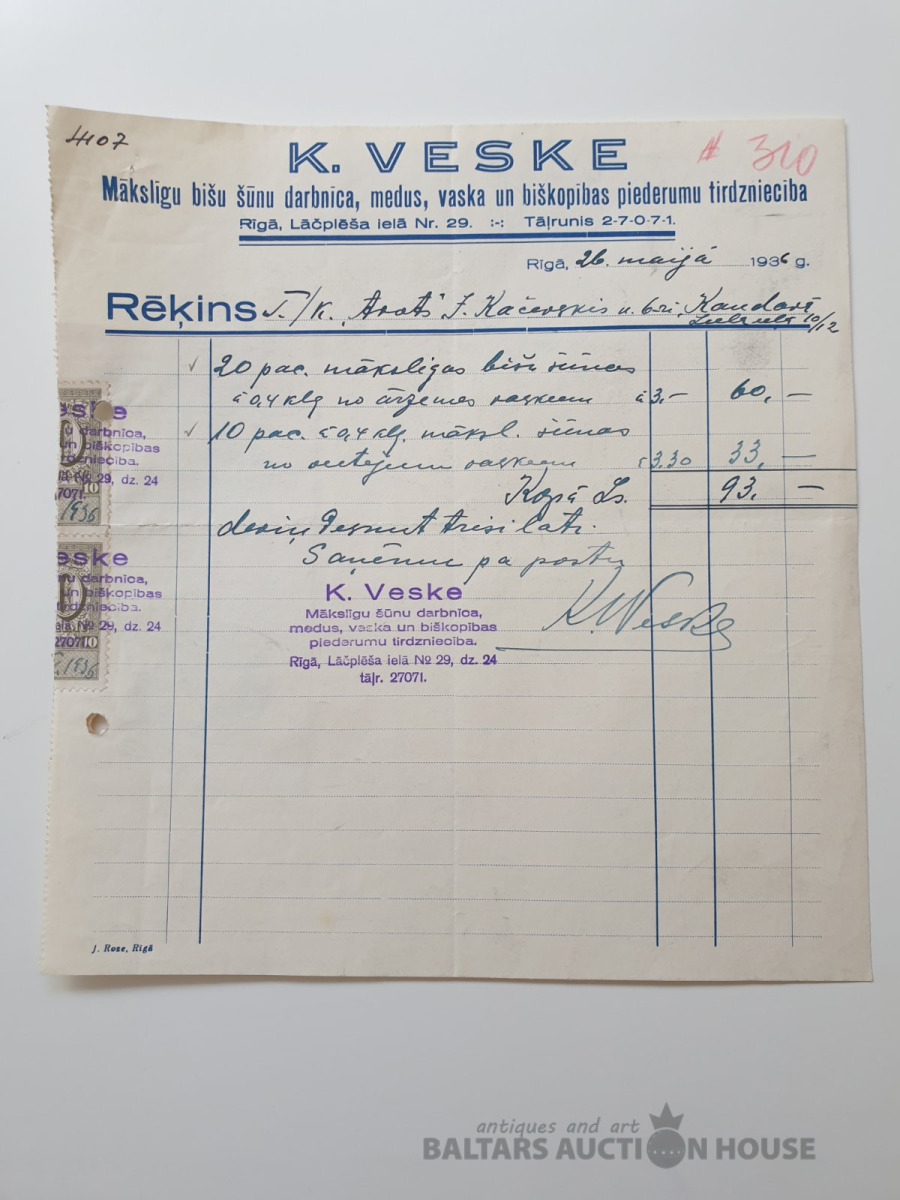 4107
K. VESKE
# 310
Mākslīgu bišu šūnu darbnīca, medus, vaska un biškopības piederumu tirdzniecība
Rīgā, Lāčplēša ielā Nr. 29. :-: Tāļrunis 2-7-0-7-1.
Rīgā, 26. maijā 1936 g.
Rēķins T./k. "Arots" J. Kačevskis u. b-ri, Kandavā
Lielielā 10/12
✓ 20 pac. mākslīgas bišu šūnas
à 0,4 klg no ārzemes vaskiem à 3,- 60,-
✓ 10 pac. à 0,4 klg. māksl. šūnas
no vaskiem 3.30 33,-
Kopā Ls. 93.-
deviņdesmit trīsi lati.
Saņēmu pa postu
K. Veske
K. Veske
Mākslīgu šūnu darbnīca,
medus, vaska un biškopības
piederumu tirdzniecība.
Rīgā, Lāčplēša ielā № 29, dz. 24
tāļr. 27071.
eske
u darbnīca,
un biškopības
rdzniecība.
№ 29, dz. 24
27071.
10
1936
eske
nu darbnīca,
un biškopības
tirdzniecība.
ielā № 29, dz. 24
27071.
10
1936
J. Roze, Rīgā
antiques and art
BALTARS AUCTION HOUSE